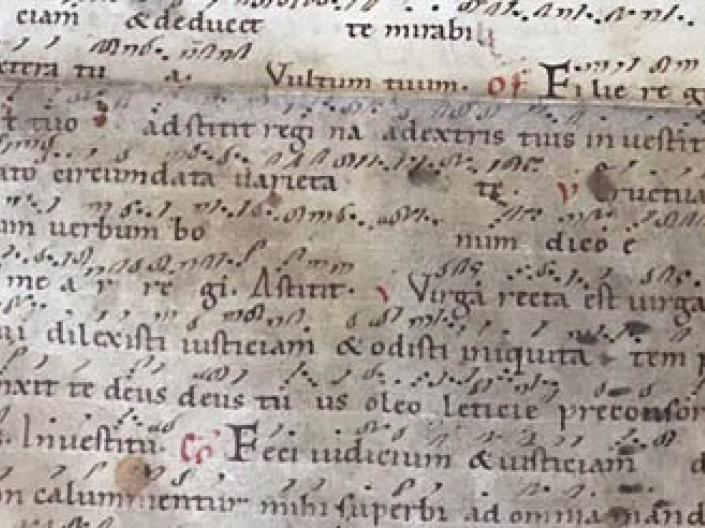 ciam & deducet te mirabi
xtera tu a. Vultum tuum. of Filie re
t tuo adstitit regi na adextris tuis in uestit
ato circumdata uarieta te. V Eructua
um uerbum bo num dico e
me a r re gi. Astitit. V Virga recta est uirga
ui dilexisti iusticiam & odisti iniquita tem p
nxit te deus deus tu us oleo leticie preconsor
Inuestitu. Co Feci iudicium & iusticiam
calumnientur mihi superbi ad omnia mand